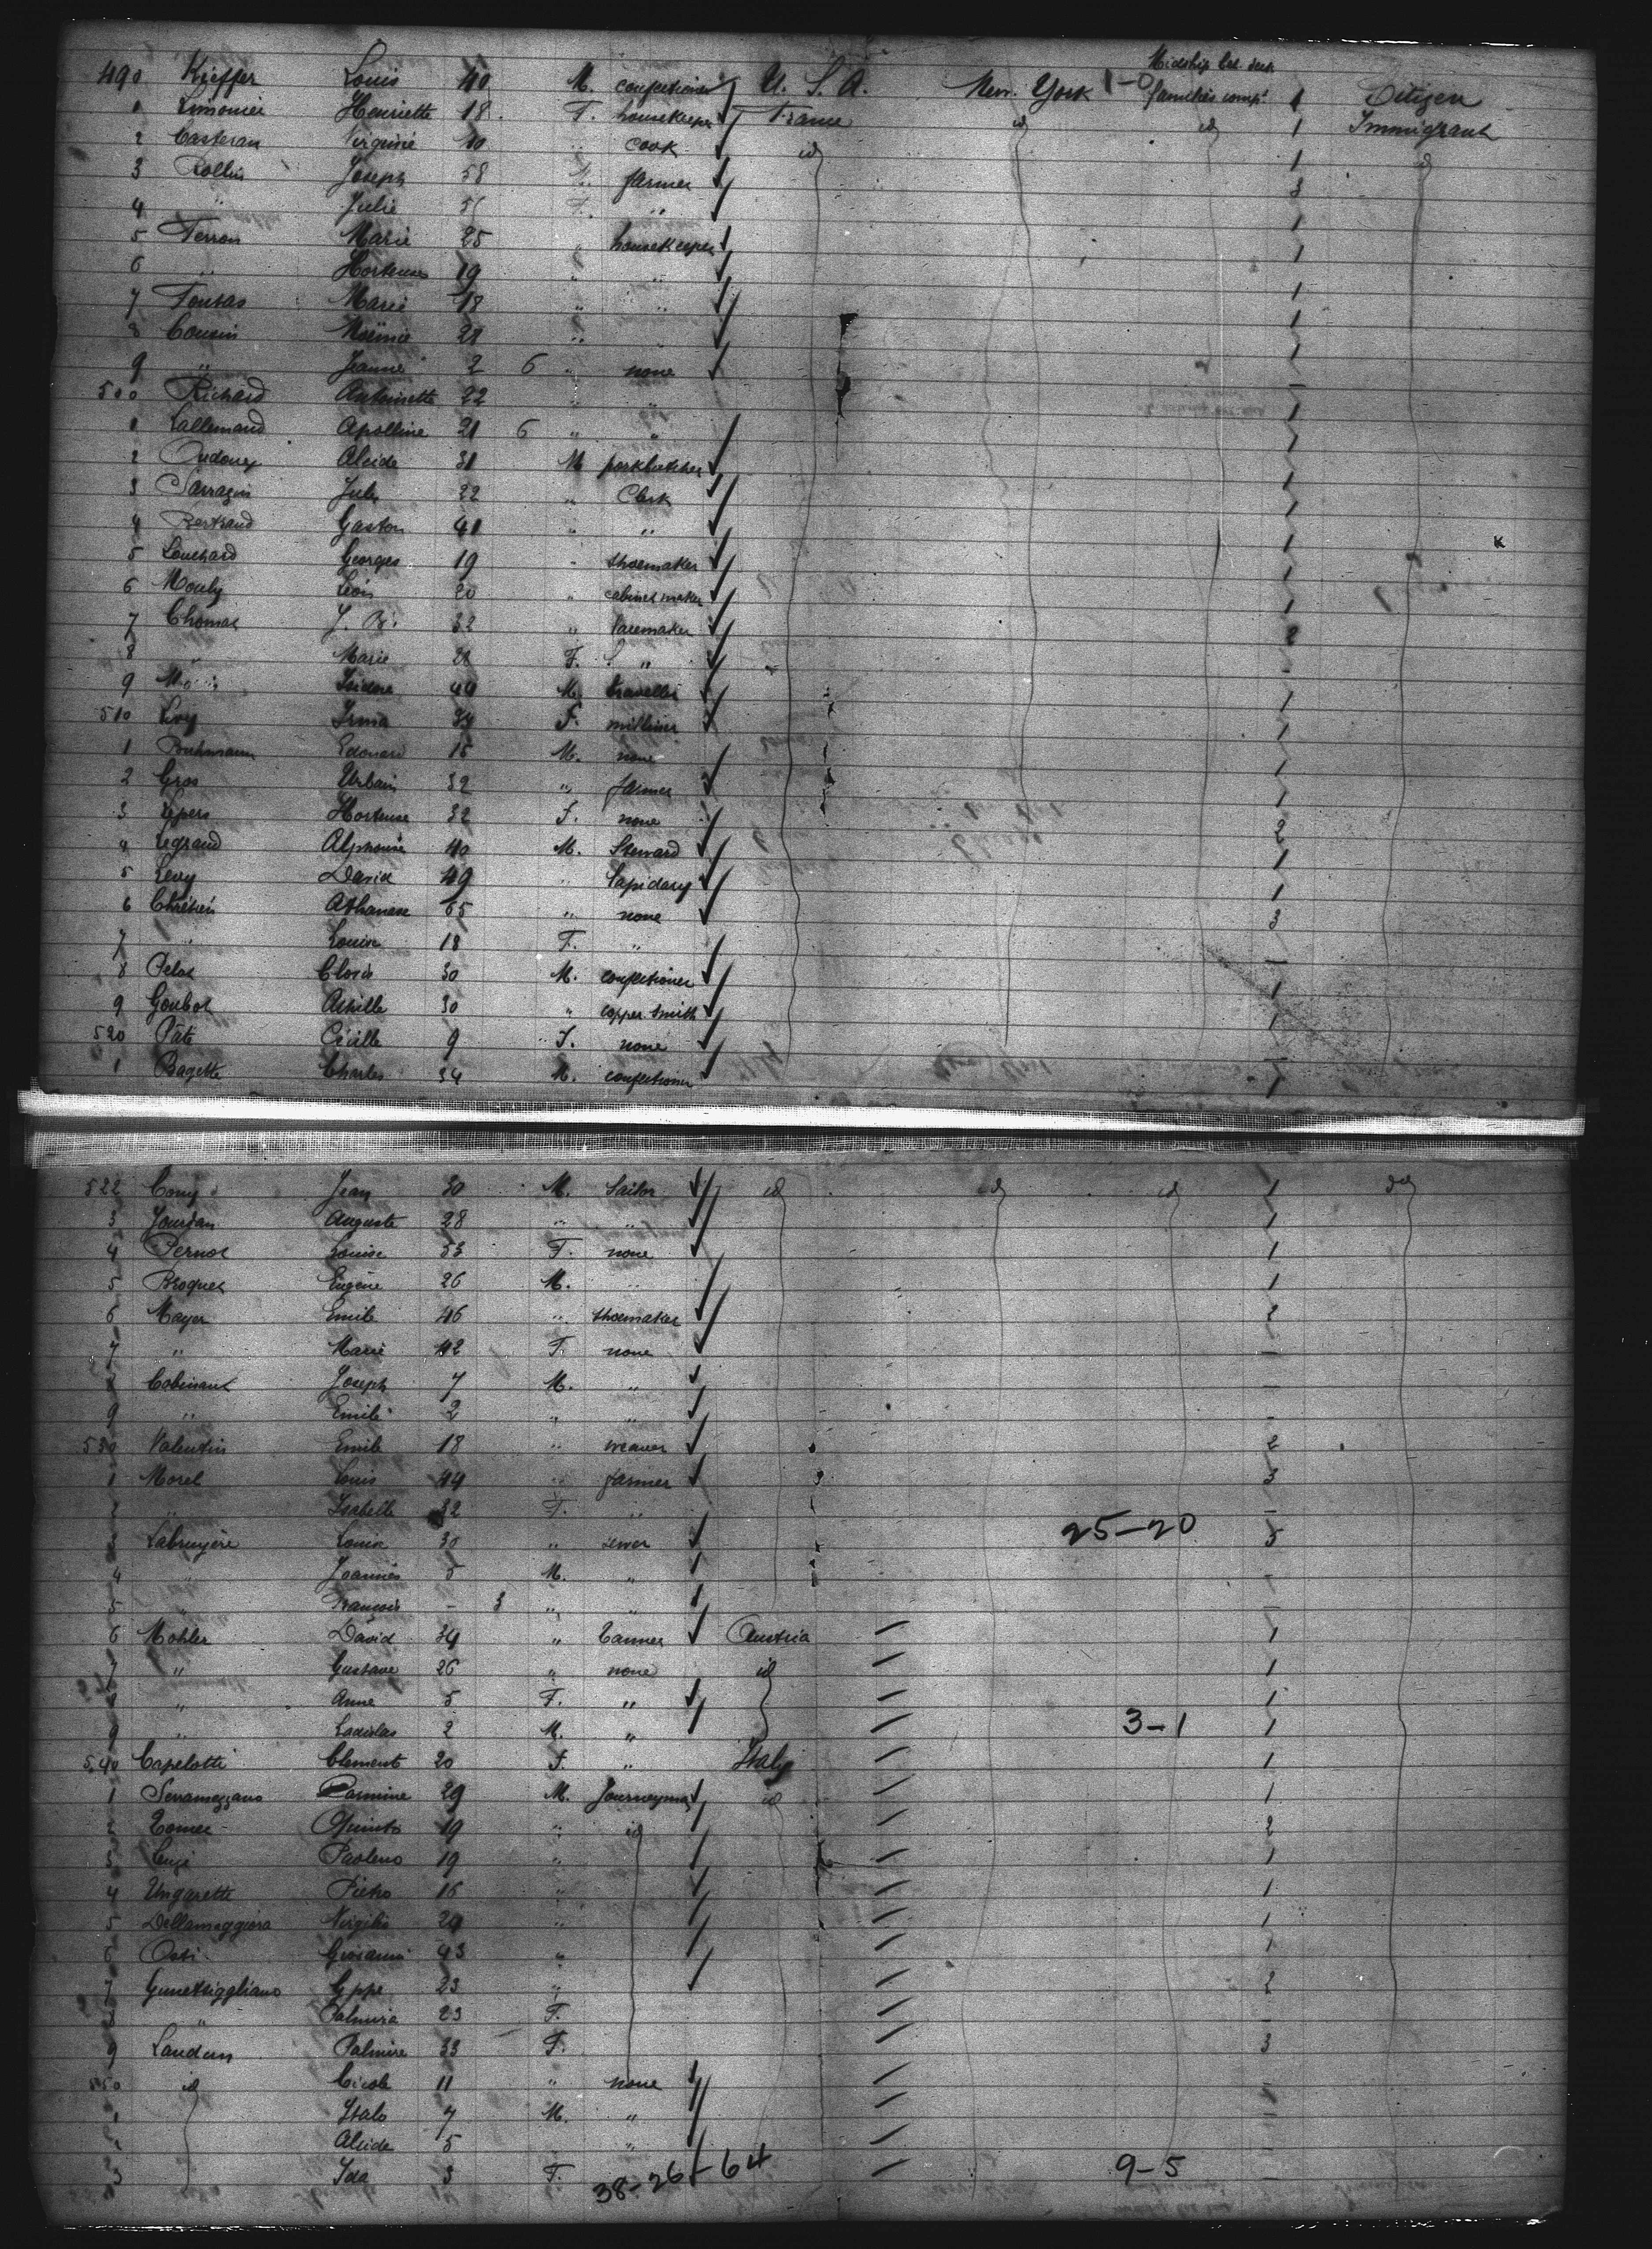 490 Kieffer Louis 40 M. confectioner U. S. A. New. York 1-0 Midship families comp.t 1 Citizen
1 Limonier Henriette 18 F. housekeeper France id id 1 Immigrant
2 Casteran Virginie 40 " cook id 1 id
3 Rollin Joseph 58 farmer 3
4 " Julie F. " 1
5 Ferron Marie 25 " housekeeper 1
6 " Hortense 19 " " 1
7 Marie 18 " " 1
8 Cousin Noémie 28 " 1
9 " Jeanne 2 6 " none –
500 Richard Antoinette 22 " " 1
1 Lallemand Apolline 21 6 " " 1
2 Alcide 31 M porkbutcher 1
3 Sarrazin Jules 22 " Clerk 1
4 Bertrand Gaston 41 " " 1
5 Louchard Georges 19 " shoemaker 1
6 Mouly Léon 20 " cabinet maker 1
7 Chomat J. B. 32 " lacemaker 2
8 " Marie 28 F. " –
9 Isidore 49 M. traveller 1
510 Levy Irma 34 F. milliner 1
1 Edouard 15 M. none 1
2 Gros Urbain 32 " farmer 1
3 Lepers Hortense 32 F. none 2
4 Legrand Alphonse 40 M. Steward 1
5 Levy David 49 " Lapidary 1
6 Chrétien Athanase 65 " none 3
7 " Louise 18 F. " –
8 Pelat Clovis 30 M. confectioner 1
9 Goubot Achille 30 " copper smith 1
520 Pâte Cécille 9 F. none –
1 Bagette Charles 34 M. confectioner 1
522 Jean 30 M. Sailor id id id 1 id
3 Jourdan Auguste 28 " " 1
4 Pernot Louise 53 F. none 1
5 Broquet Eugène 26 M. " 1
6 Mayer Emile 46 " shoemaker 2
7 " Marie 42 F. none –
8 Joseph 7 M. " –
9 " Emile 2 " " –
530 Valentin Emile 18 " weaver 2
1 Morel Louis 44 " farmer 3
2 " Isabelle 32 F. " –
3 Labruyère Louise 30 " sewer 25-20 3
4 " Joannès 5 M. " –
5 " François – 3 " " –
6 Mohler David 34 " Tanner Austria 1
7 " Gustave 26 " none id 1
8 " Anne 5 F. " 1
9 " Ladislas 2 M. " 3-1 1
540 Capelotti Clement 20 F. " Italy 1
1 Serramezzano Carmine 29 M. Journeyman id 1
2 Quinto 19 " id 2
3 Luigi Paoleno 19 " 1
4 Ungarette Pietro 16 " 1
5 Dellamaggiora Virgilio 29 " 1
6 Giovanni 43 " 1
7 Gppe 23 " 2
8 " Palmira 23 F. –
9 Landun Palmire 33 F. 3
550 id Cicole 11 " none –
1 Italo 7 M. " –
2 Alcide 5 " –
3 Ida 3 F. 38-26+64 9-5 –